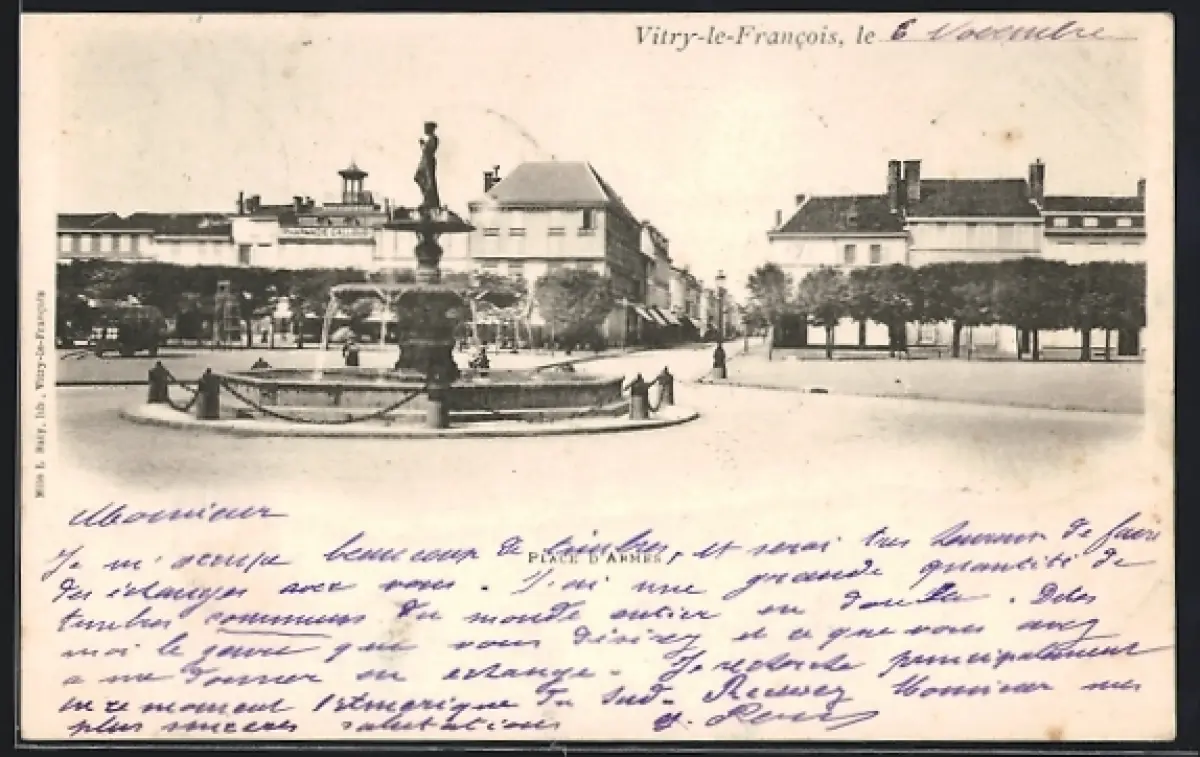 Vitry-le-François, le 6 Novembre
PHARMACIE CALLOUD
Mlles L. Nacy, lib., Vitry-le-François
PLACE D'ARMES
Monsieur
Je m'occupe beaucoup de timbres, et serai très heureux de faire
des échanges avec vous. J'ai une grande quantité de
timbres communs du monde entier en double. Dites
moi le genre que vous désirez et ce que vous avez
a me donner en échange. Je recherche principalement
en ce moment l'Amérique du Sud. Recevez Monsieur mes
plus sincères salutations